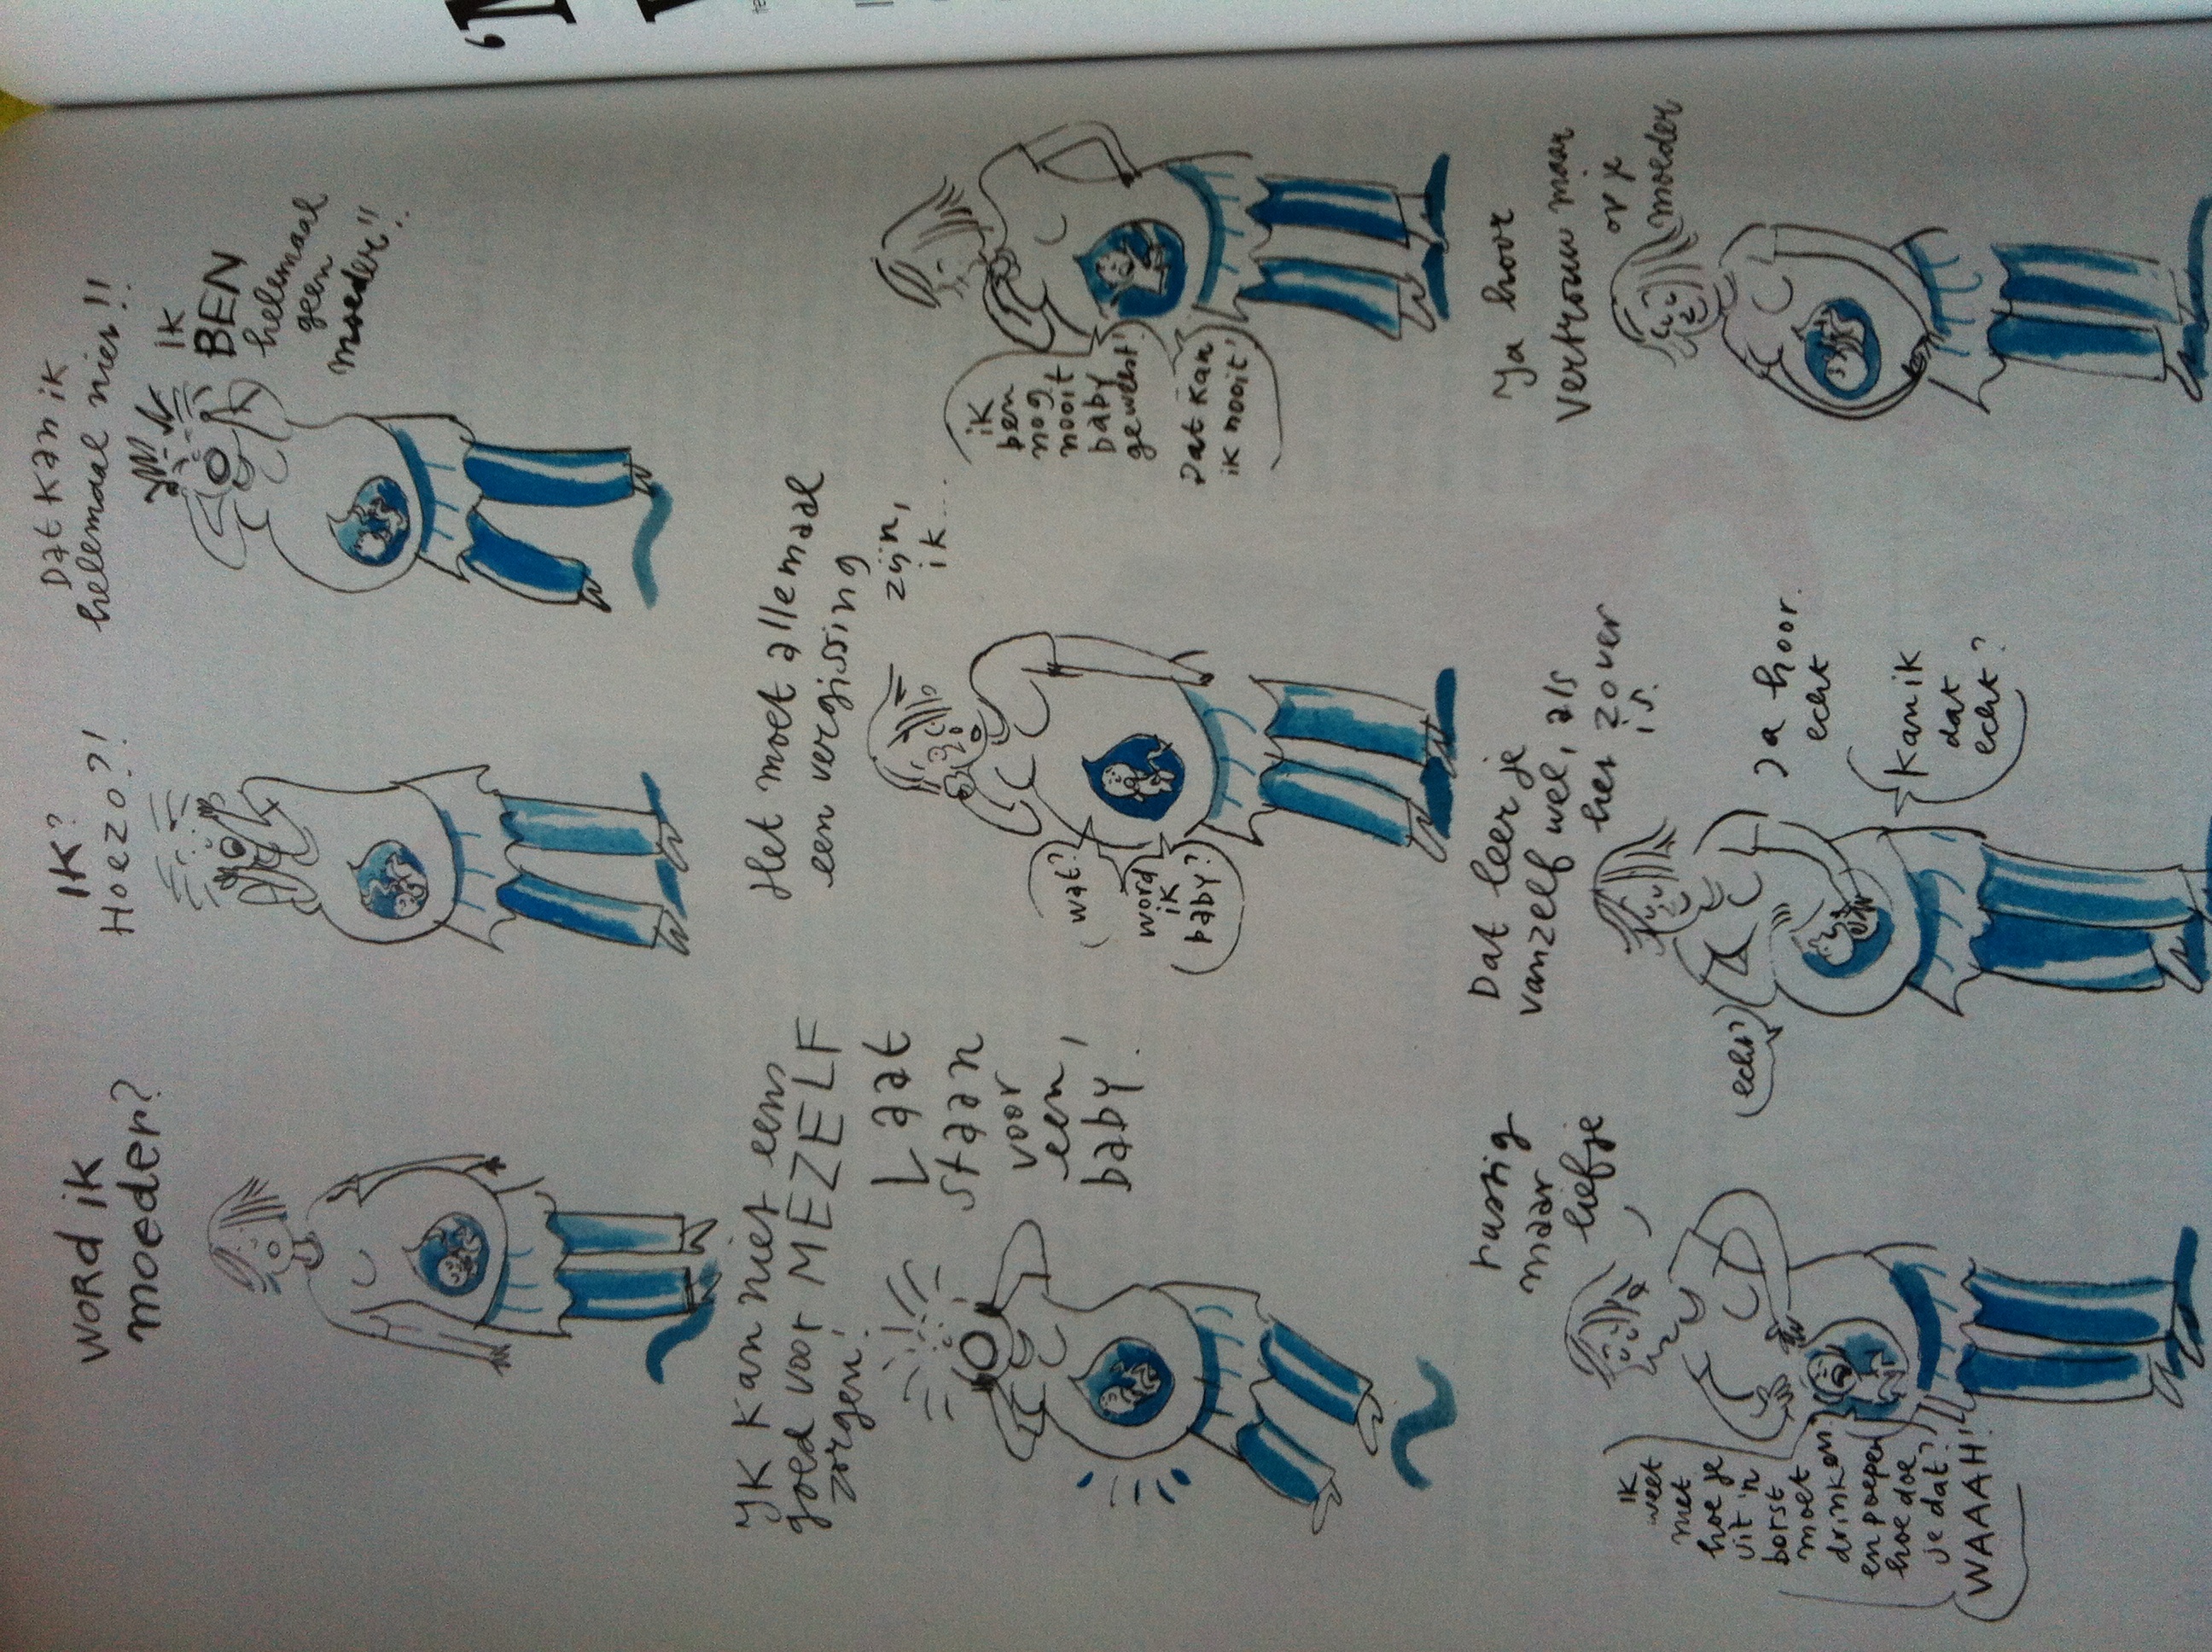 WORD iK
moeder?
IK?
Hoezo?!
Dat kan ik
helemaal niet!!
IK
BEN
helemaal
geen
moeder!!
IK kan niet eens
goed voor MEZELF
zorgen!
Laat
staan
voor
een
baby.
Het moet allemaal
een vergissing
zijn,
ik...
wat?
word
ik
baby?
ik
ben
nog
nooit
baby
geweest!
Dat kan
ik nooit!
rustig
maar
liefje
IK
weet
niet
hoe je
uit 'n
borst
moet
drinken
en poepen
hoe doe
je dat?
WAAAH!
Dat leer je
vanzelf wel, als
het zover
is.
echt?
Ja hoor.
echt
Kan ik
dat
echt?
Ja hoor
vertrouw maar
op je
moeder